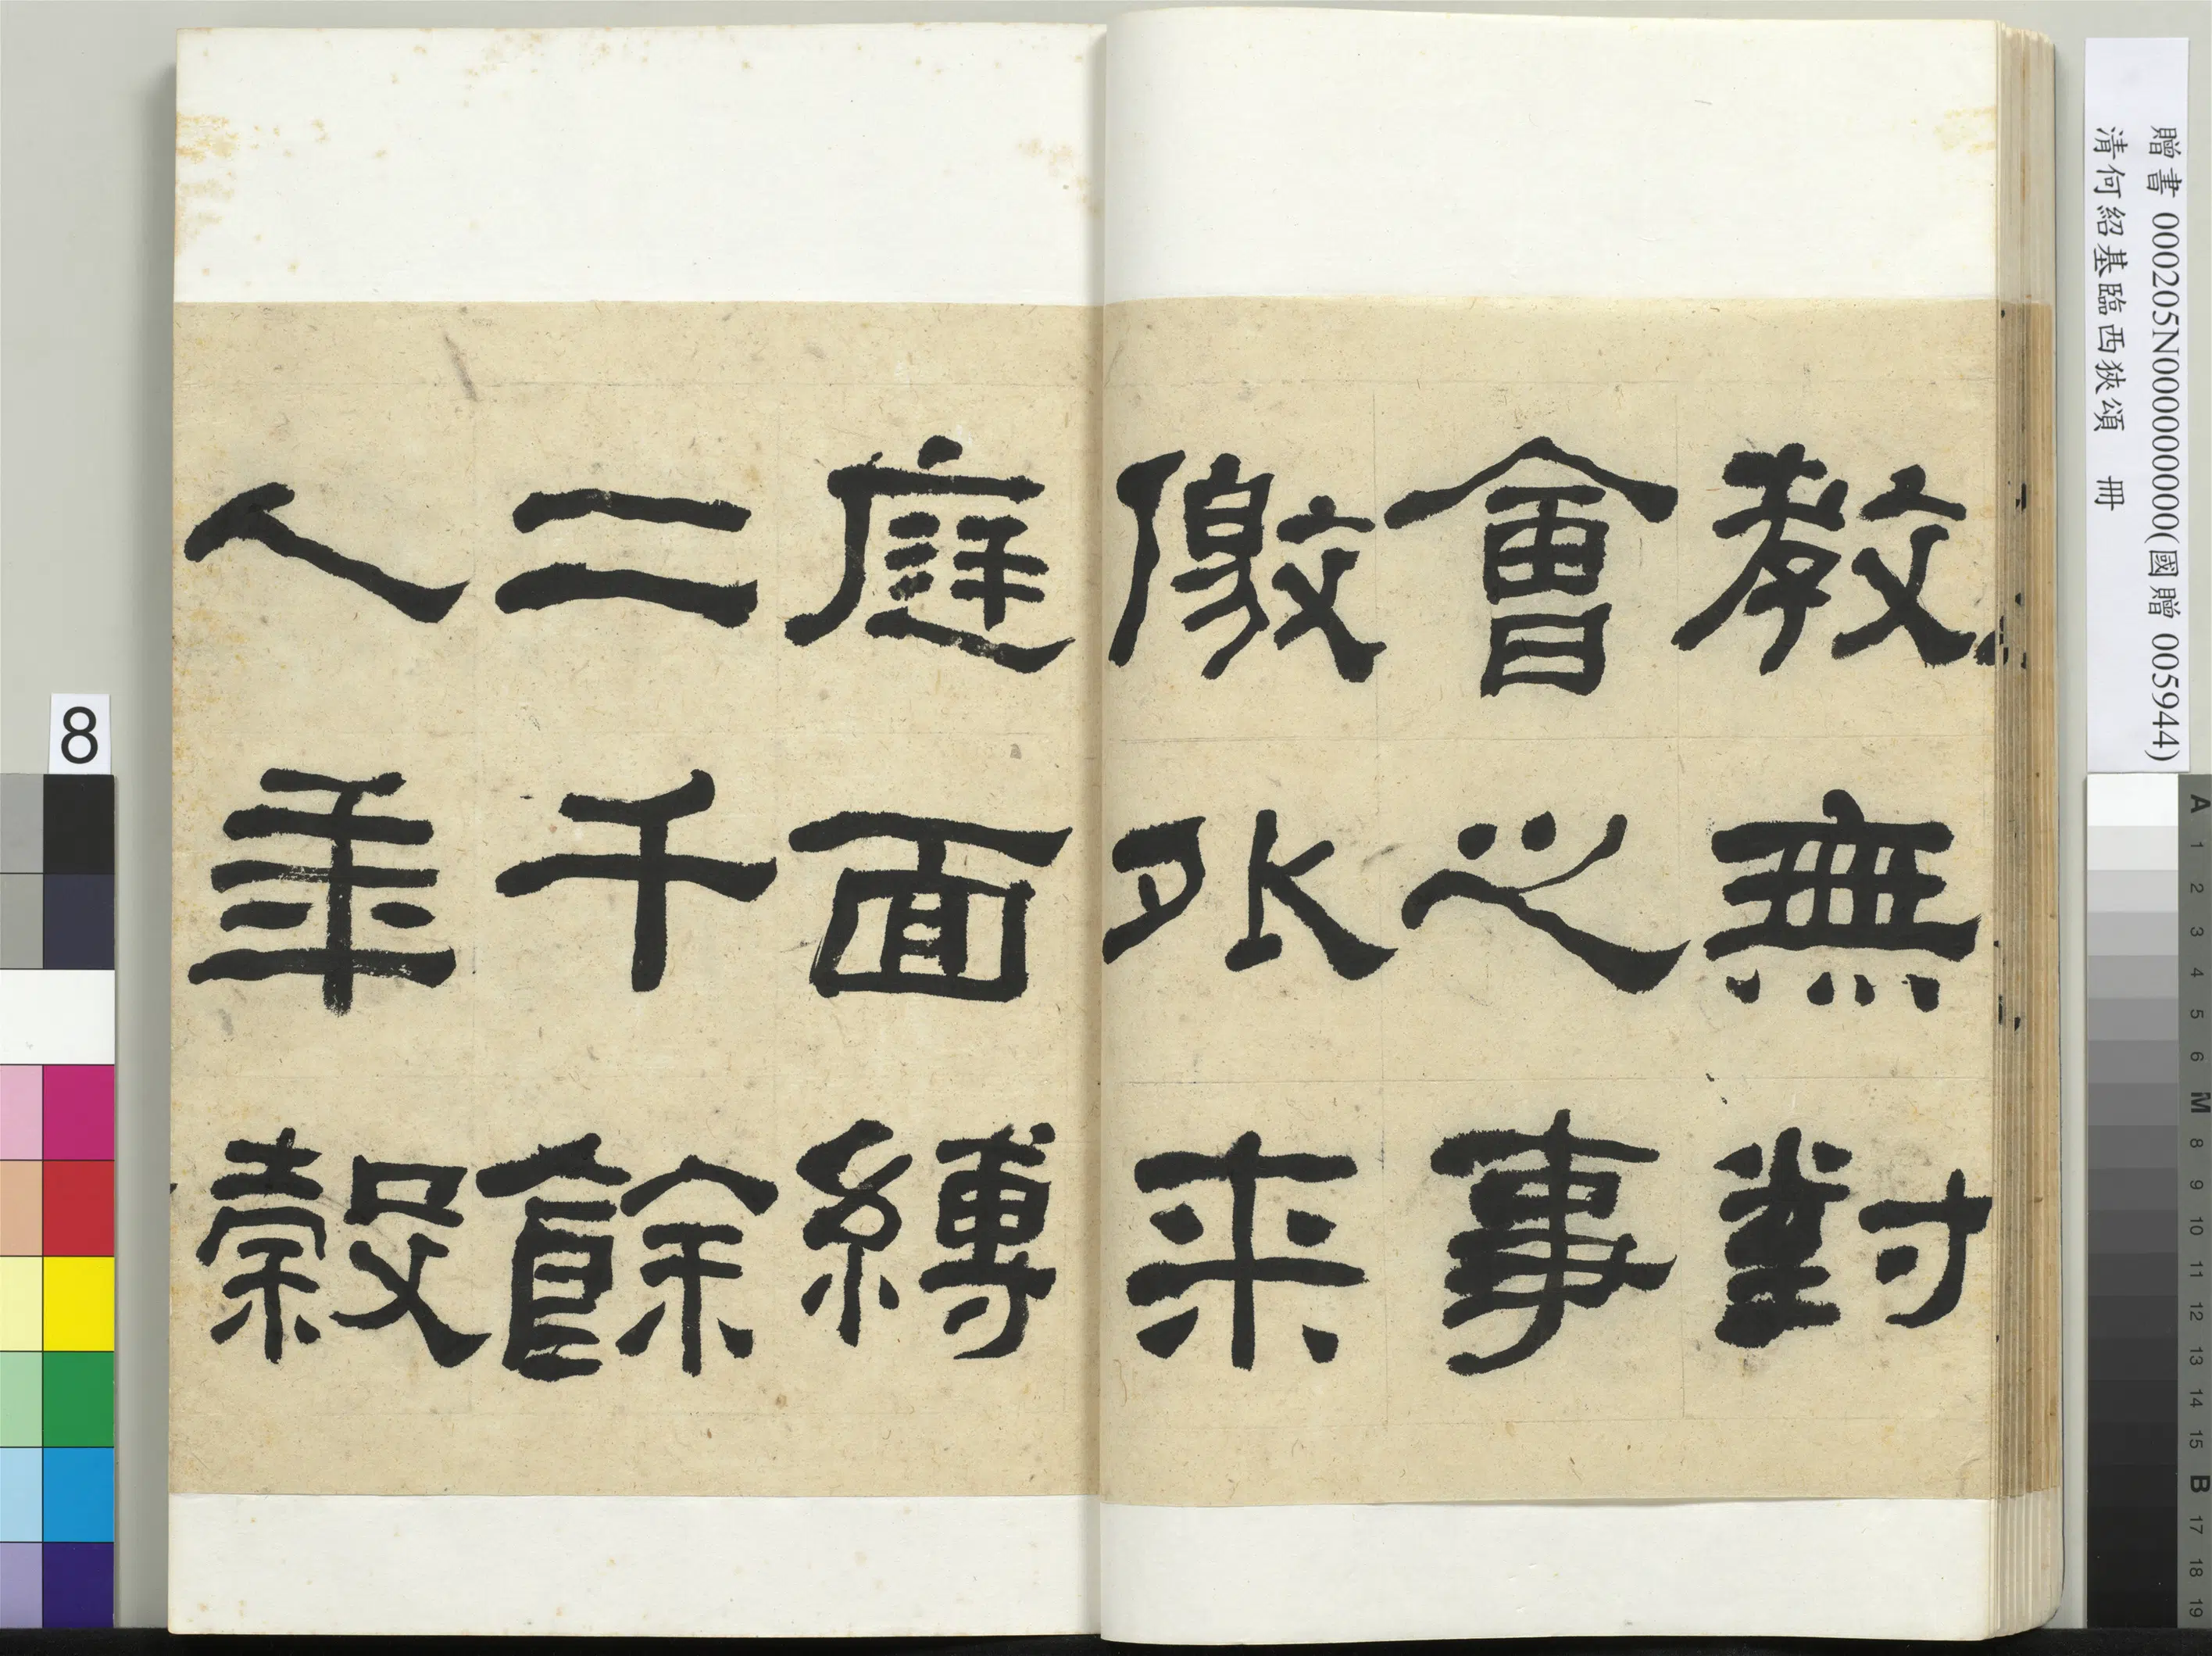 贈書 000205N000000000(國贈 005944)
清何紹基臨西狹頌 冊
教無對
會之事
儌外来
庭面縛
二千餘
人年穀
8
A 1 2 3 4 5 6 M 8 9 10 11 12 13 14 15 B 17 18 19